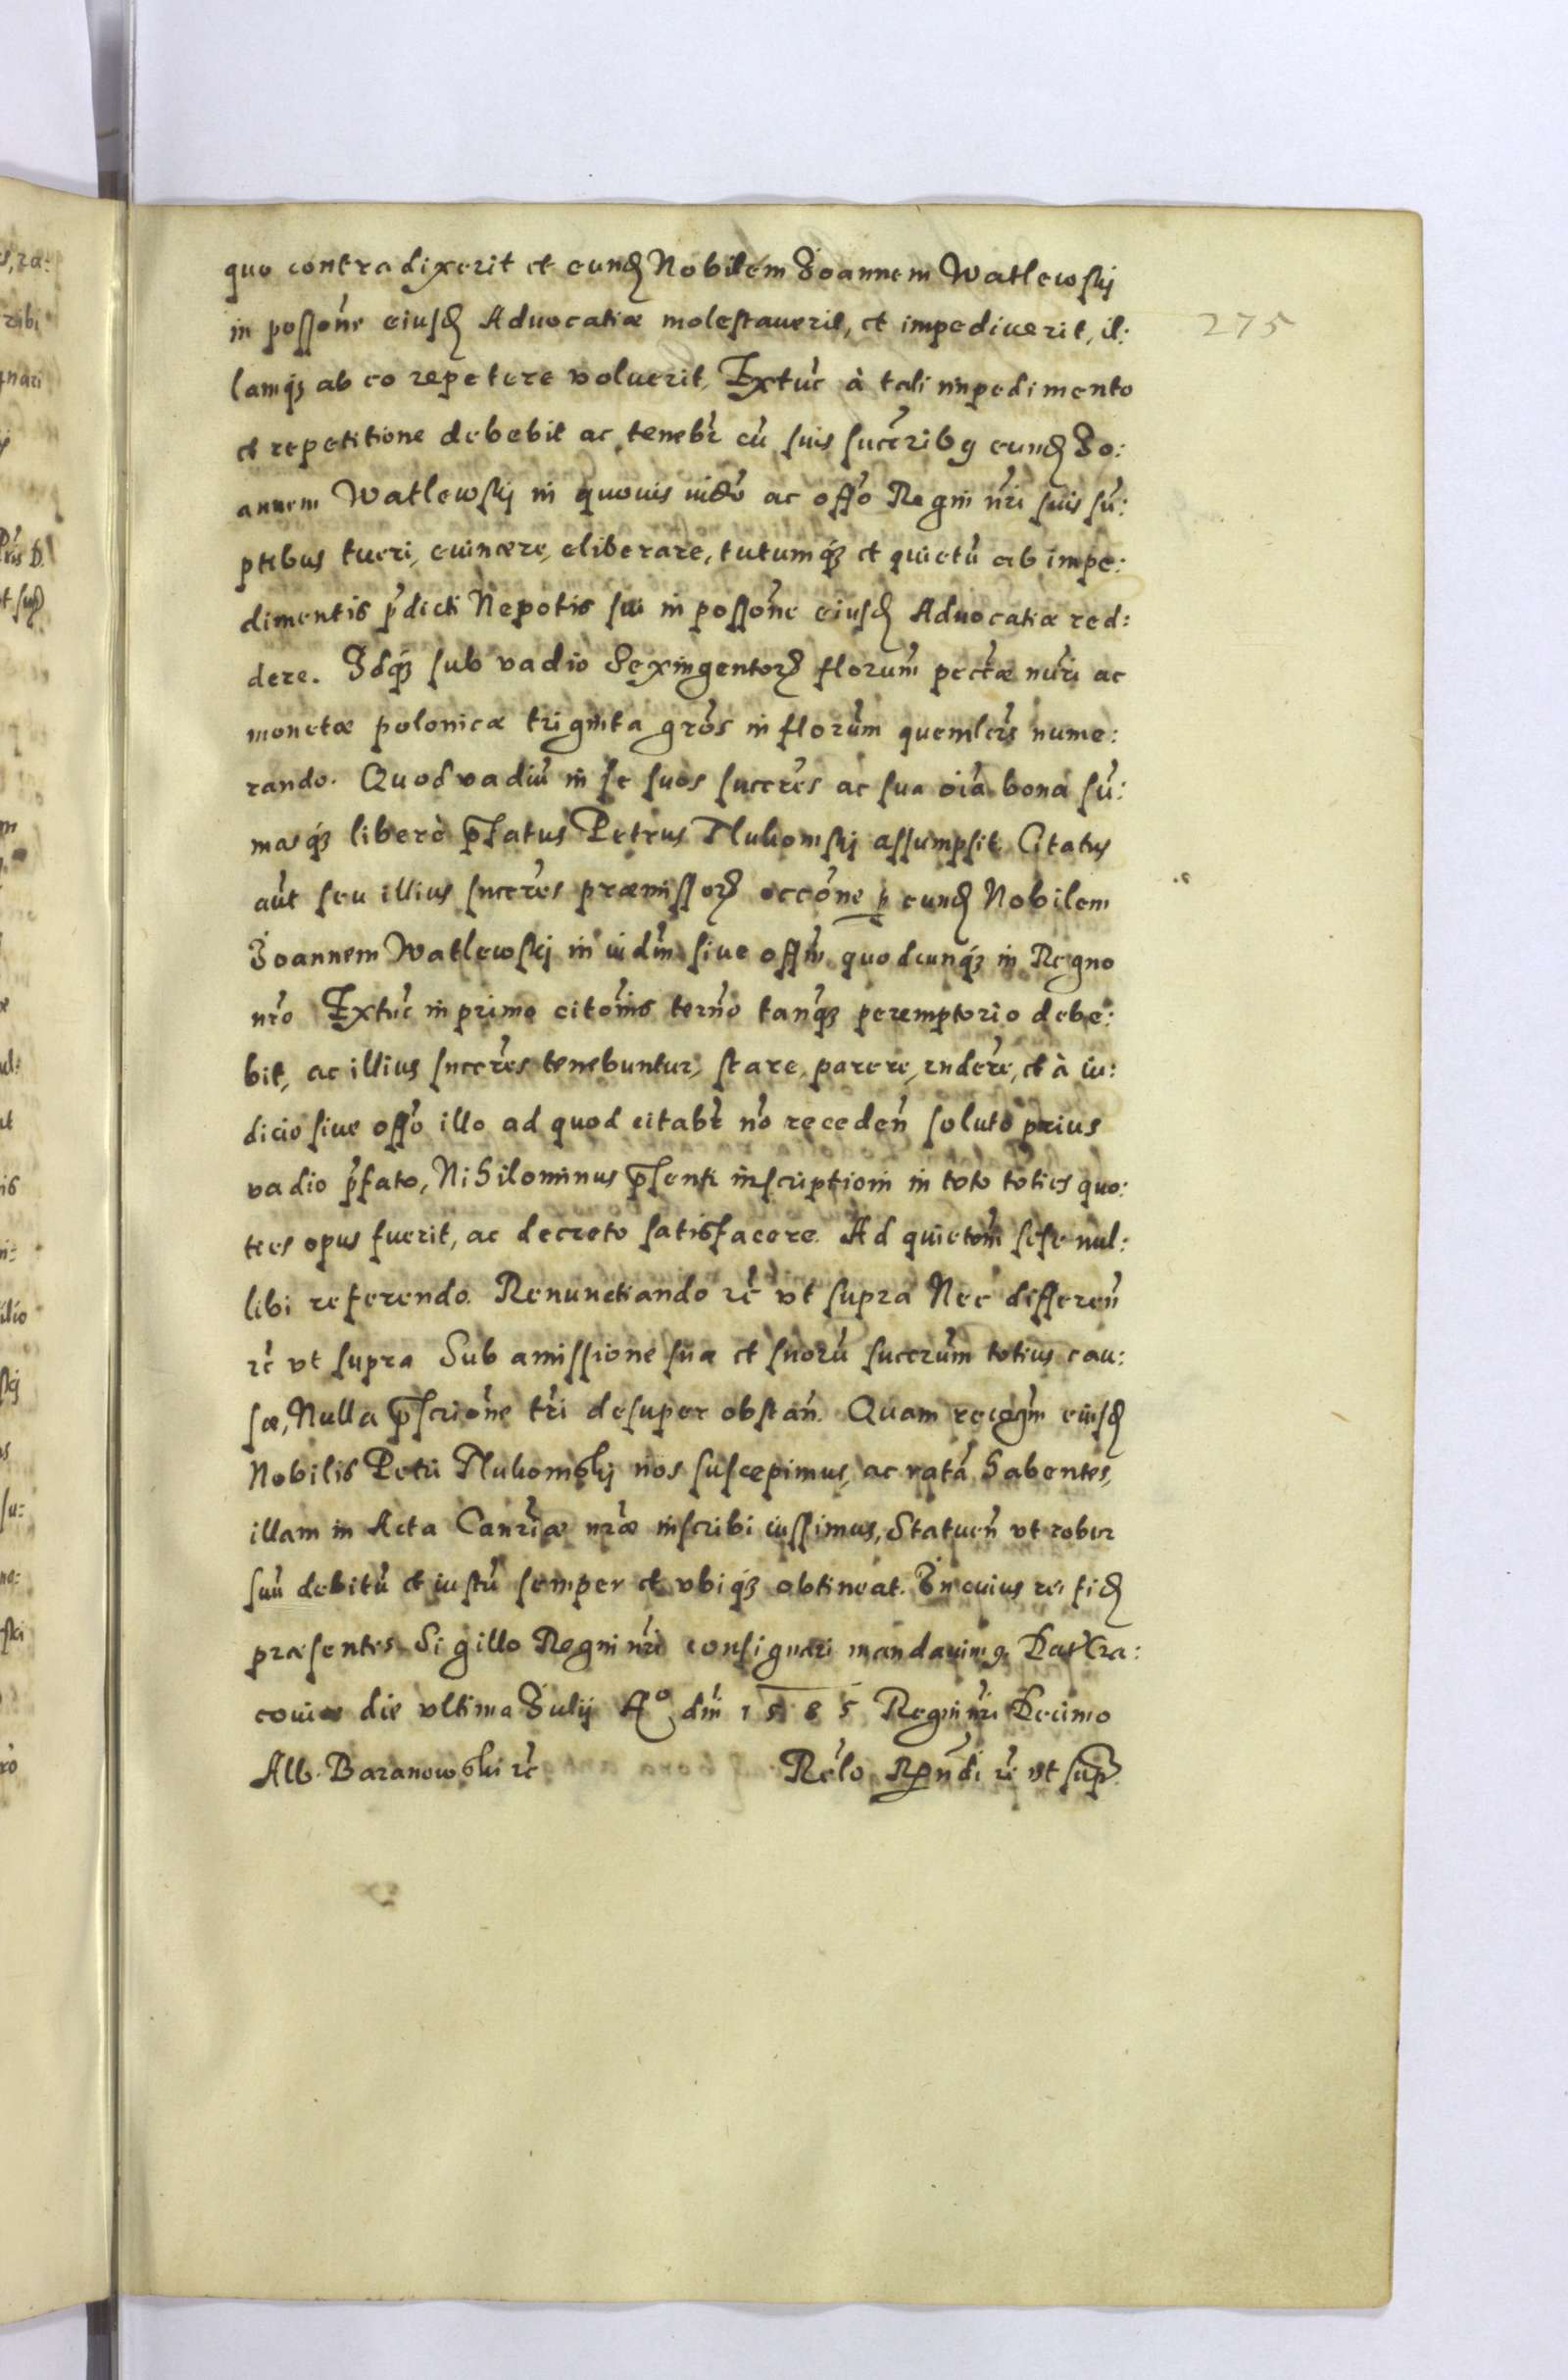 quo contradixerit et eund Nobilem Joannem Watlewskj
in possone eiusd Advocatiæ molestaverit, et impediverit, il:
275
lamq3 ab eo repetere voluerit, Extuc à tali impedimento
et repetitione debebit ac tenebr cu suis succribus eund Jo:
annem Watlewskj in quovis iudo ac offo Regni nri suis su:
ptibus tueri, evincere, eliberare, tutumq3 et quietu ab impe:
dimentis pdicti Nepotis sui in possone eiusd Advocatiæ red:
dere. Idq3 sub vadio Sexingentor florum pectæ nuri ac
monetæ polonicæ triginta gros in florum quemlers nume:
rando. Quod vadiu in se suos succres ac sua oia bona su:
masq3 libere pfatus Petrus Tlukomskj assumpsit. Citatus
aut seu illius succres præmissor occone p eund Nobilem
Joannem Watlewskj in iudm sive offm quodcunq3 in Regno
nro Extuc in primo citonis terno tanq3 peremptorio debe:
bit, ac illius succres tenebuntur, stare, parere, rndere, et à iu:
dicio sive offo illo ad quod citabr no receden soluto prius
vadio pfato, Nihilominus psenti inscriptioni in toto toties quo:
ties opus fuerit, ac decreto satisfacere. Ad quietom sese nul:
libi referendo. Renunctiando rc vt supra Nec differen
rc vt supra Sub amissione sua et suoru succrum totius cau:
sæ, Nulla pscrione tri desuper obstan. Quam recogm eiusd
Nobilis Petri Tlukomskj nos suscepimus, ac rata habentes,
illam in Acta Canriæ nræ inscribi iussimus, Statuen vt robur
suu debitu et iustu semper et vbiq3 obtineat. In cuius rei fid
præsentes Sigillo Regni nri consignari mandavimus. Dat Cra:
coviæ die vltima Julij Ao dni 1585 Regni nri Decimo
Alb. Baranowski rc Relo Rndi rc vt sup